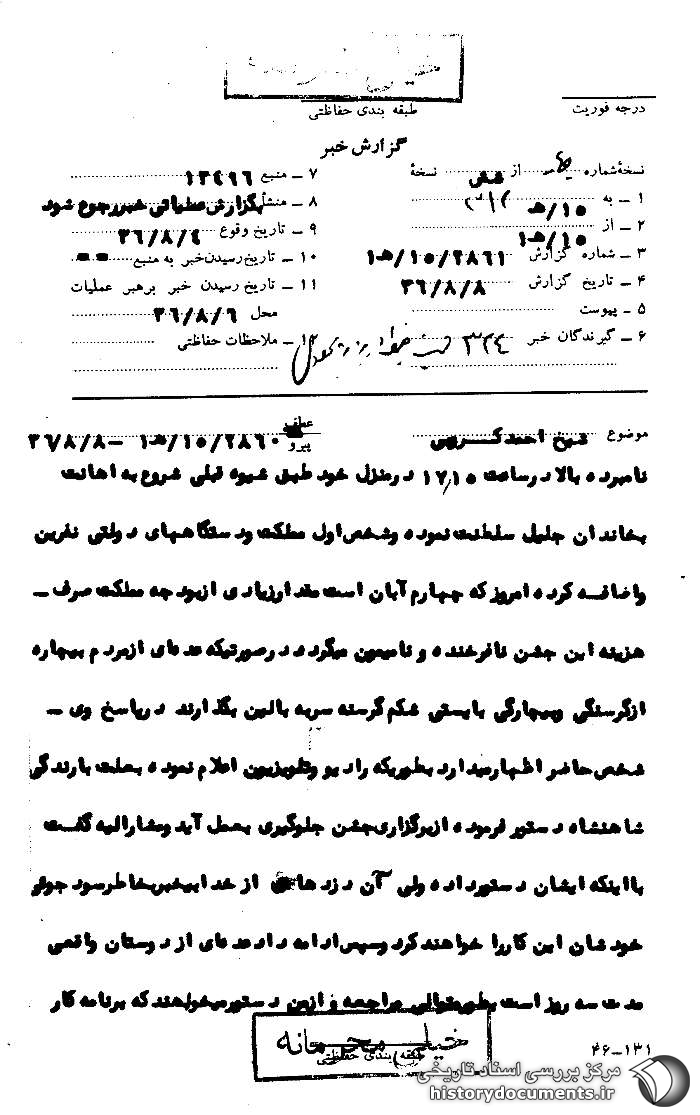 درجه فوریت
طبقه بندی حفاظتی
گزارش خبر
نسخهٔ شماره از شش نسخهٔ
۱ ــ به ۱۵/هـ
۲ ــ از ۱۵/هـ۱
۳ ــ شماره گزارش ۱۵/۲۸۶۱/هـ۱
۴ ــ تاریخ گزارش ۳۶/۸/۸
۵ ــ پیوست
۶ ــ گیرندگان خبر ۳۲۴
۷ ــ منبع ۱۳۴۹۶
۸ ــ منشأ بگزارش عملیاتی خبر رجوع شود
۹ ــ تاریخ وقوع ۳۶/۸/۴
۱۰ ــ تاریخ رسیدن خبر به منبع
۱۱ ــ تاریخ رسیدن خبر برهبر عملیات
محل ۳۶/۸/۶
۱۲ ــ ملاحظات حفاظتی
موضوع شیخ احمد کروبی
عطف
پیرو ۱۵/۲۸۶۰/هـ۱ ــ ۳۶/۸/۸
نامبرده بالا در ساعت ۱۷/۱۵ در منزل خود طبق شیوه قبلی شروع به اهانت
بخاندان جلیل سلطنت نموده و شخص اول مملکت و دستگاههای دولتی نفرین
و اضافه کرده امروز که چهارم آبان است مقدار زیادی از بودجه مملکت صرف ــ
هزینه این جشن نافرخنده و نامیمون میگردد در صورتیکه عده‌ای از مردم بیچاره
از گرسنگی و بیچارگی بایستی شکم گرسنه سر به بالین بگذارند در پاسخ وی ــ
شخص حاضر اظهار میدارد بطوریکه رادیو و تلویزیون اعلام نموده بعلت بارندگی
شاهنشاه دستور فرموده از برگزاری جشن جلوگیری بعمل آید و مشارالیه گفت
با اینکه ایشان دستور داده ولی آن دزدهای از خدا بیخبر بخاطر سود جوئی
خودشان این کار را خواهند کرد و سپس ادامه داد عده‌ای از دوستان واقعی
مدت سه روز است بطور متوالی مراجعه و از من دستور میخواهند که برنامه کار
خیلی محرمانه
طبقه بندی حفاظتی
۴۶-۱۳۱
مرکز بررسی اسناد تاریخی
historydocuments.ir